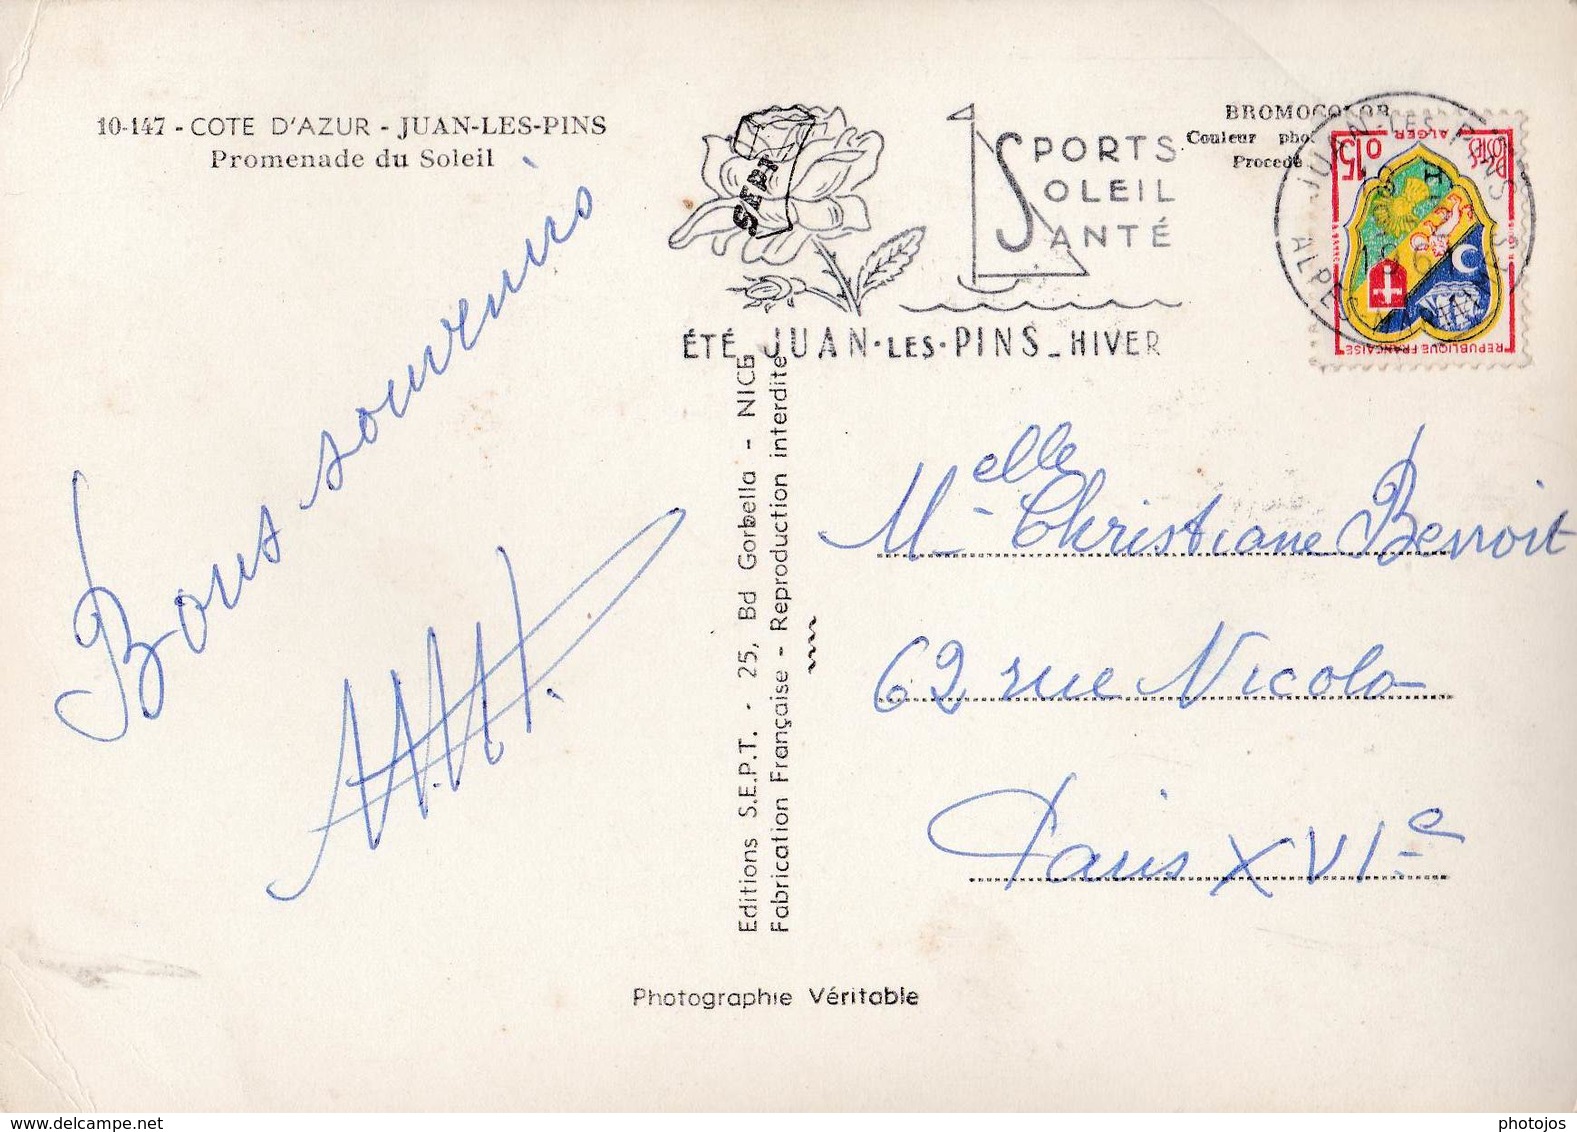 10-147 - COTE D'AZUR - JUAN-LES-PINS
Promenade du Soleil
Bons souvenirs
SEPT
SPORTS
SOLEIL
SANTÉ
ÉTÉ JUAN·LES·PINS_HIVER
BROMOCOLOR
Couleur phot
Procédé
JUAN-LES-PINS
ALPES
POSTES
0,15
ALGER
REPUBLIQUE FRANÇAISE
Editions S.E.P.T. - 25, Bd Gorbella - NICE
Fabrication Française - Reproduction interdite
Melle Christiane Benoit
62 rue Nicolo
Paris XVIe
Photographie Véritable
photojos